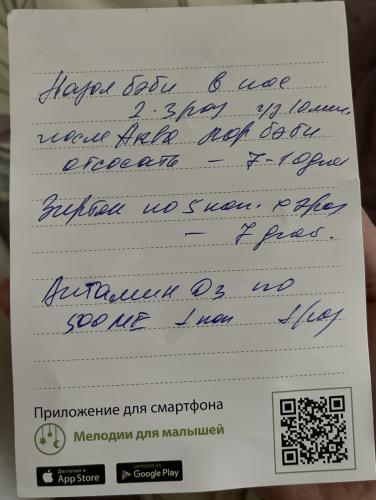 Назол бэби в нос
2-3 раз ч/з 10 мин.
после Аква Мор бэби
отсосать – 7-10 дней
по 5 кап. раз
– 7 дней.
Витамин D3 по
500 МЕ 1 кап 1 раз
Приложение для смартфона
Мелодии для малышей
Доступно в
App Store
Google Play